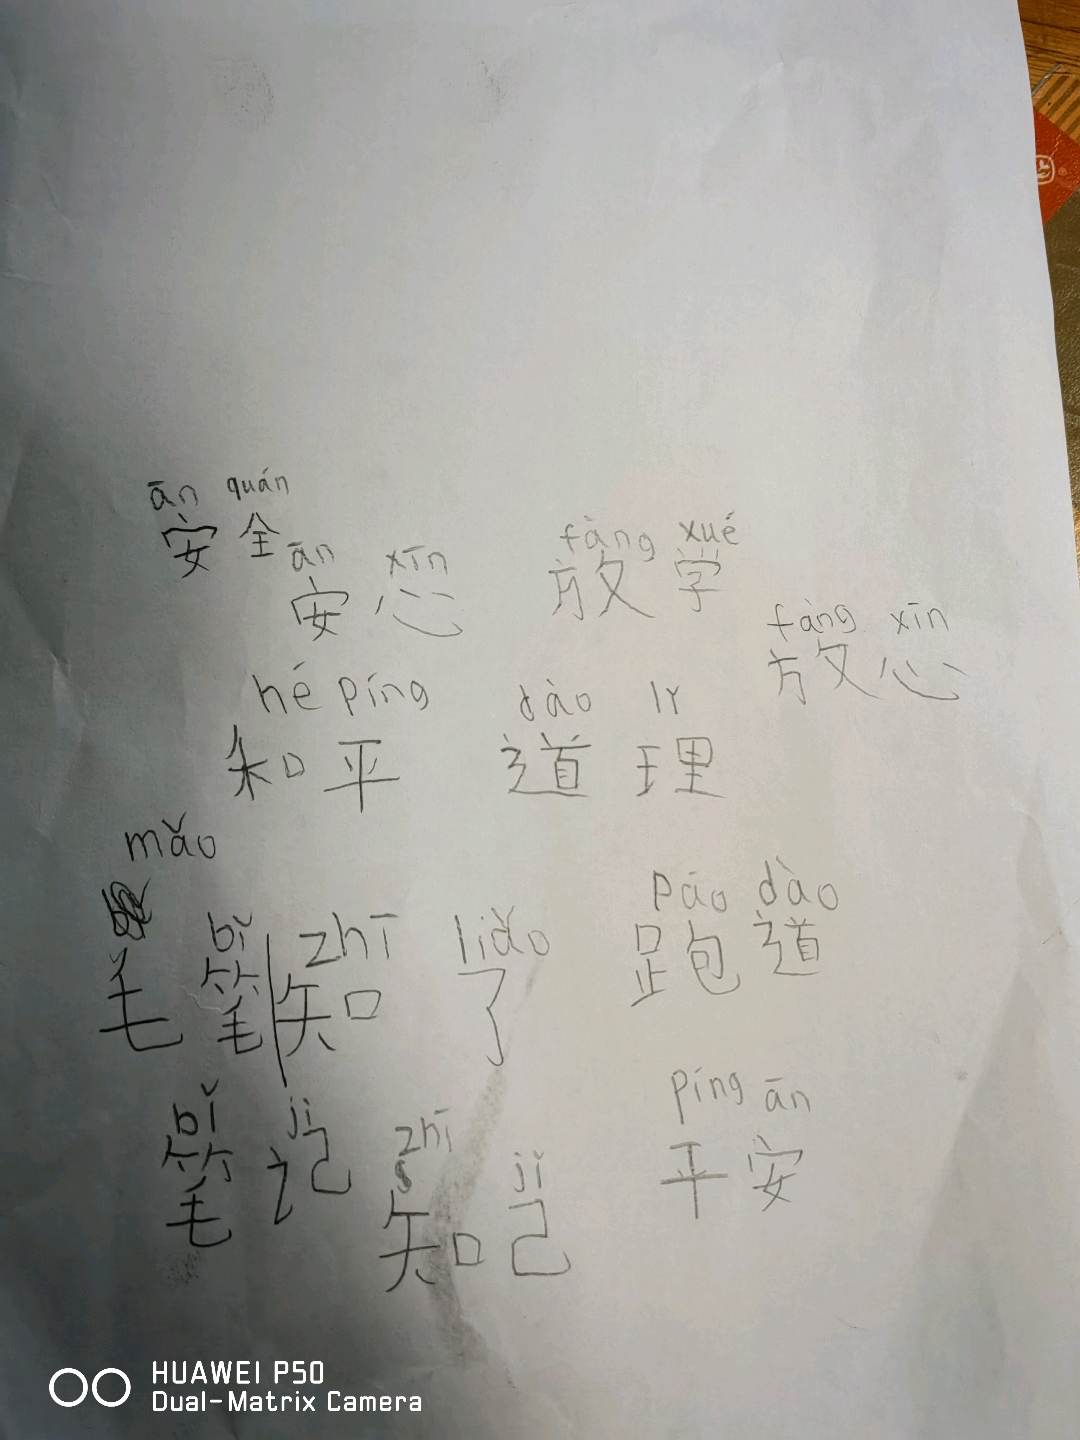 ān quán
安全
ān xīn
安心
fàng xué
放学
fàng xīn
放心
hé píng
和平
dào lǐ
道理
mǎo
毛
bǐ
笔
zhī liǎo
知了
pǎo dào
跑道
bǐ jì
笔记
zhī jǐ
知己
píng ān
平安
HUAWEI P50
Dual-Matrix Camera